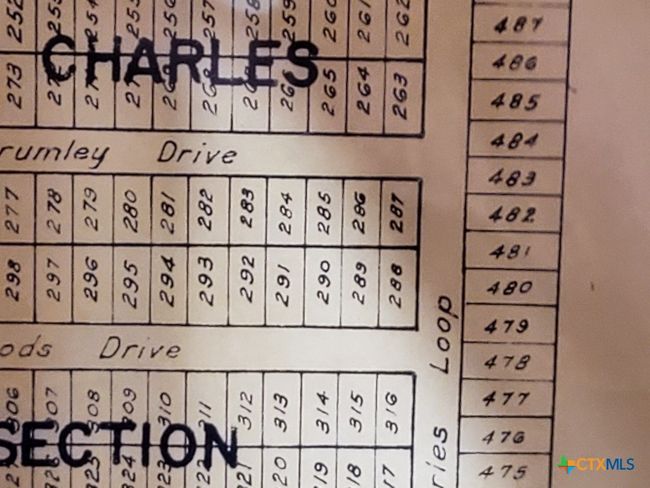 252 253 254 255 256 257 258 259 260 261 262
CHARLES
273 265 264 263
rumley Drive
277 278 279 280 281 282 283 284 285 286 287
298 297 296 295 294 293 292 291 290 289 288
ods Drive
306 307 308 309 310 311 312 313 314 315 316
SECTION
ries Loop
487
486
485
484
483
482
481
480
479
478
477
476
475
CTXMLS